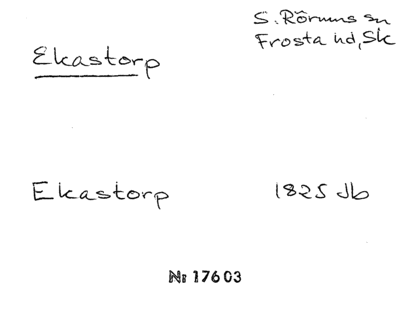 Ekastorp
S. Rörums sn
Frosta hd, Sk
Ekastorp 1825 Jb
Nr 17603